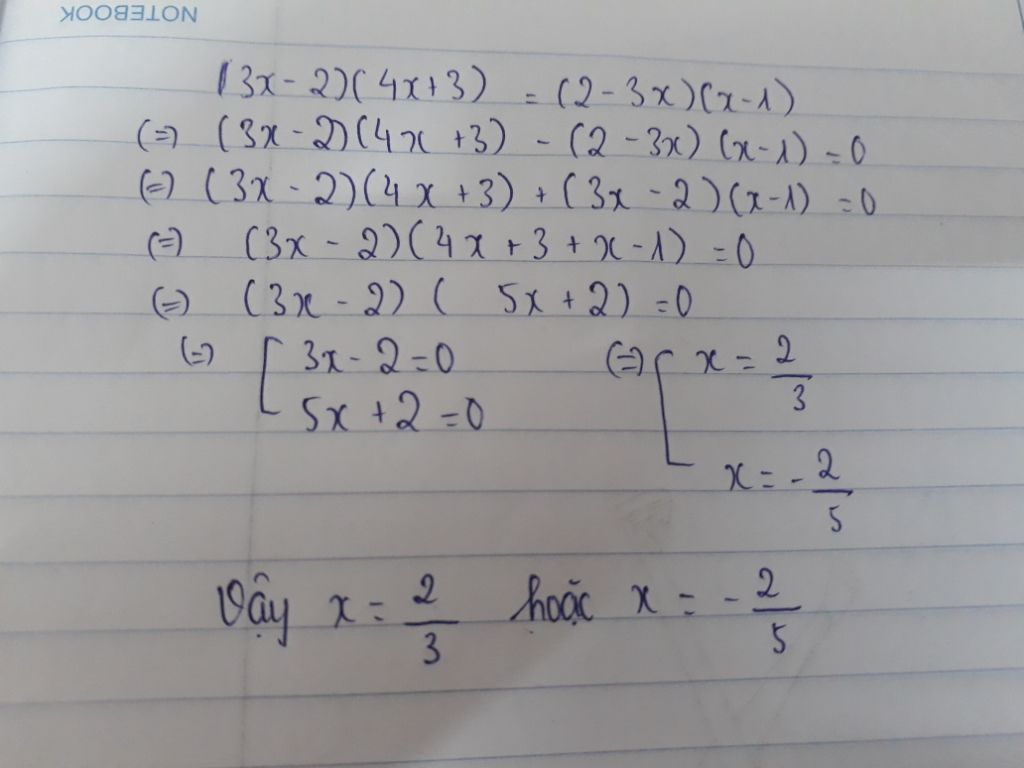 NOTEBOOK
(3x - 2)(4x+3) = (2 - 3x)(x-1)
(=) (3x - 2)(4x + 3) - (2 - 3x) (x-1) = 0
(=) (3x - 2)(4x + 3) + (3x - 2)(x-1) = 0
(=) (3x - 2)(4x + 3 + x - 1) = 0
(=) (3x - 2) ( 5x + 2) = 0
(=) [ 3x - 2 = 0 (=) [ x = 2/3
5x + 2 = 0 x = - 2/5
Vậy x = 2/3 hoặc x = - 2/5